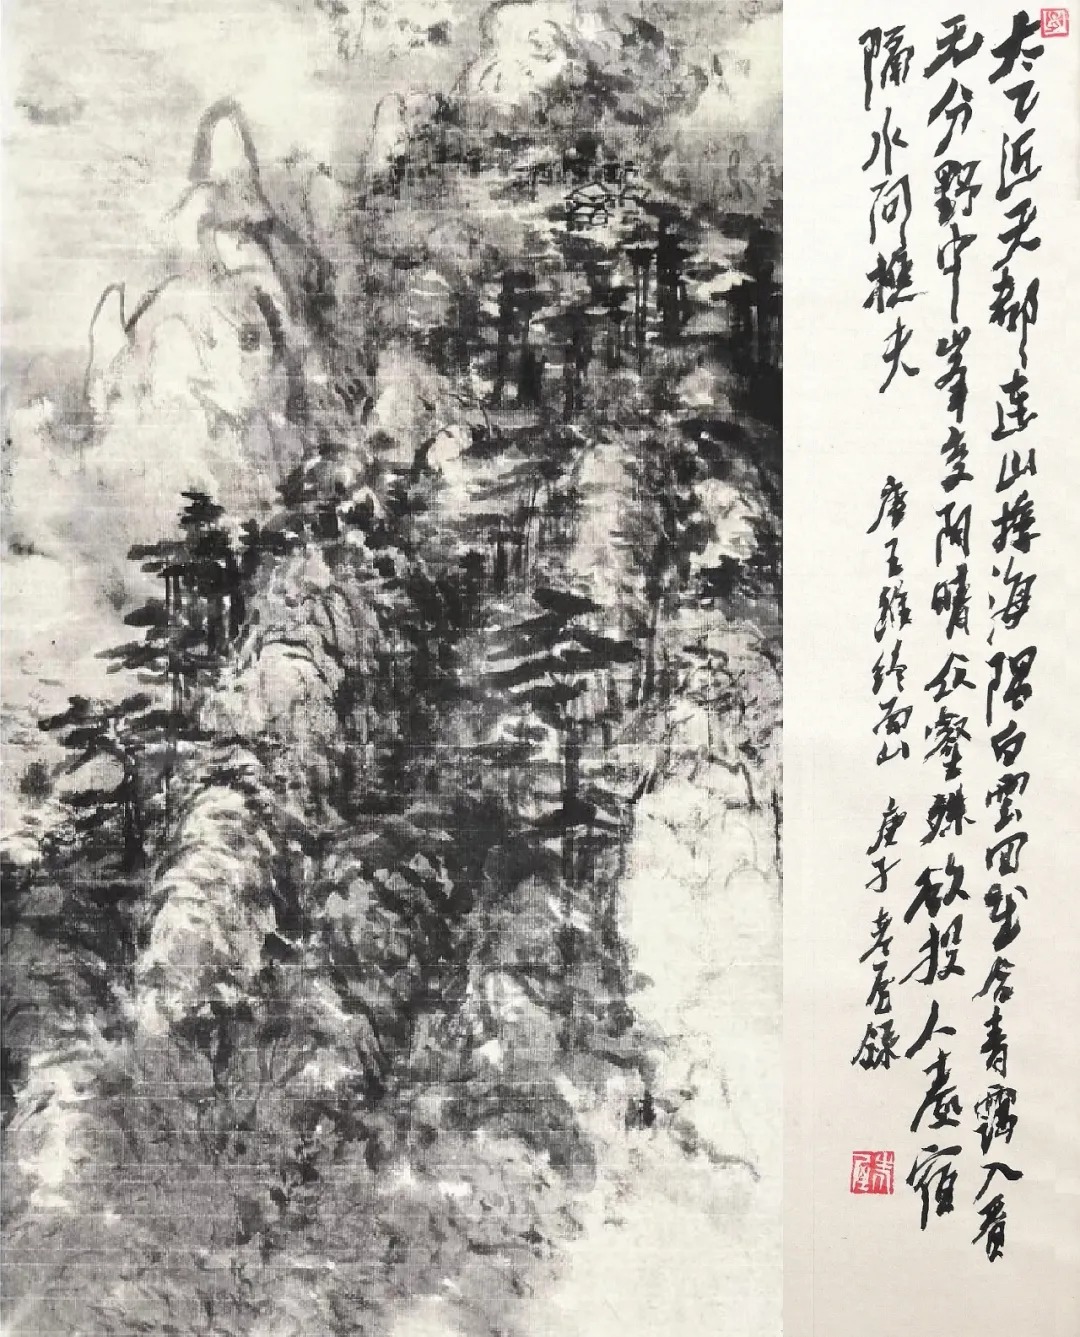 太乙近天都連山接海隅白雲回望合青靄入看
无分野中峯变阴晴众壑殊欲投人處宿
隔水问樵夫 唐王維終南山 庚子 老屋錄